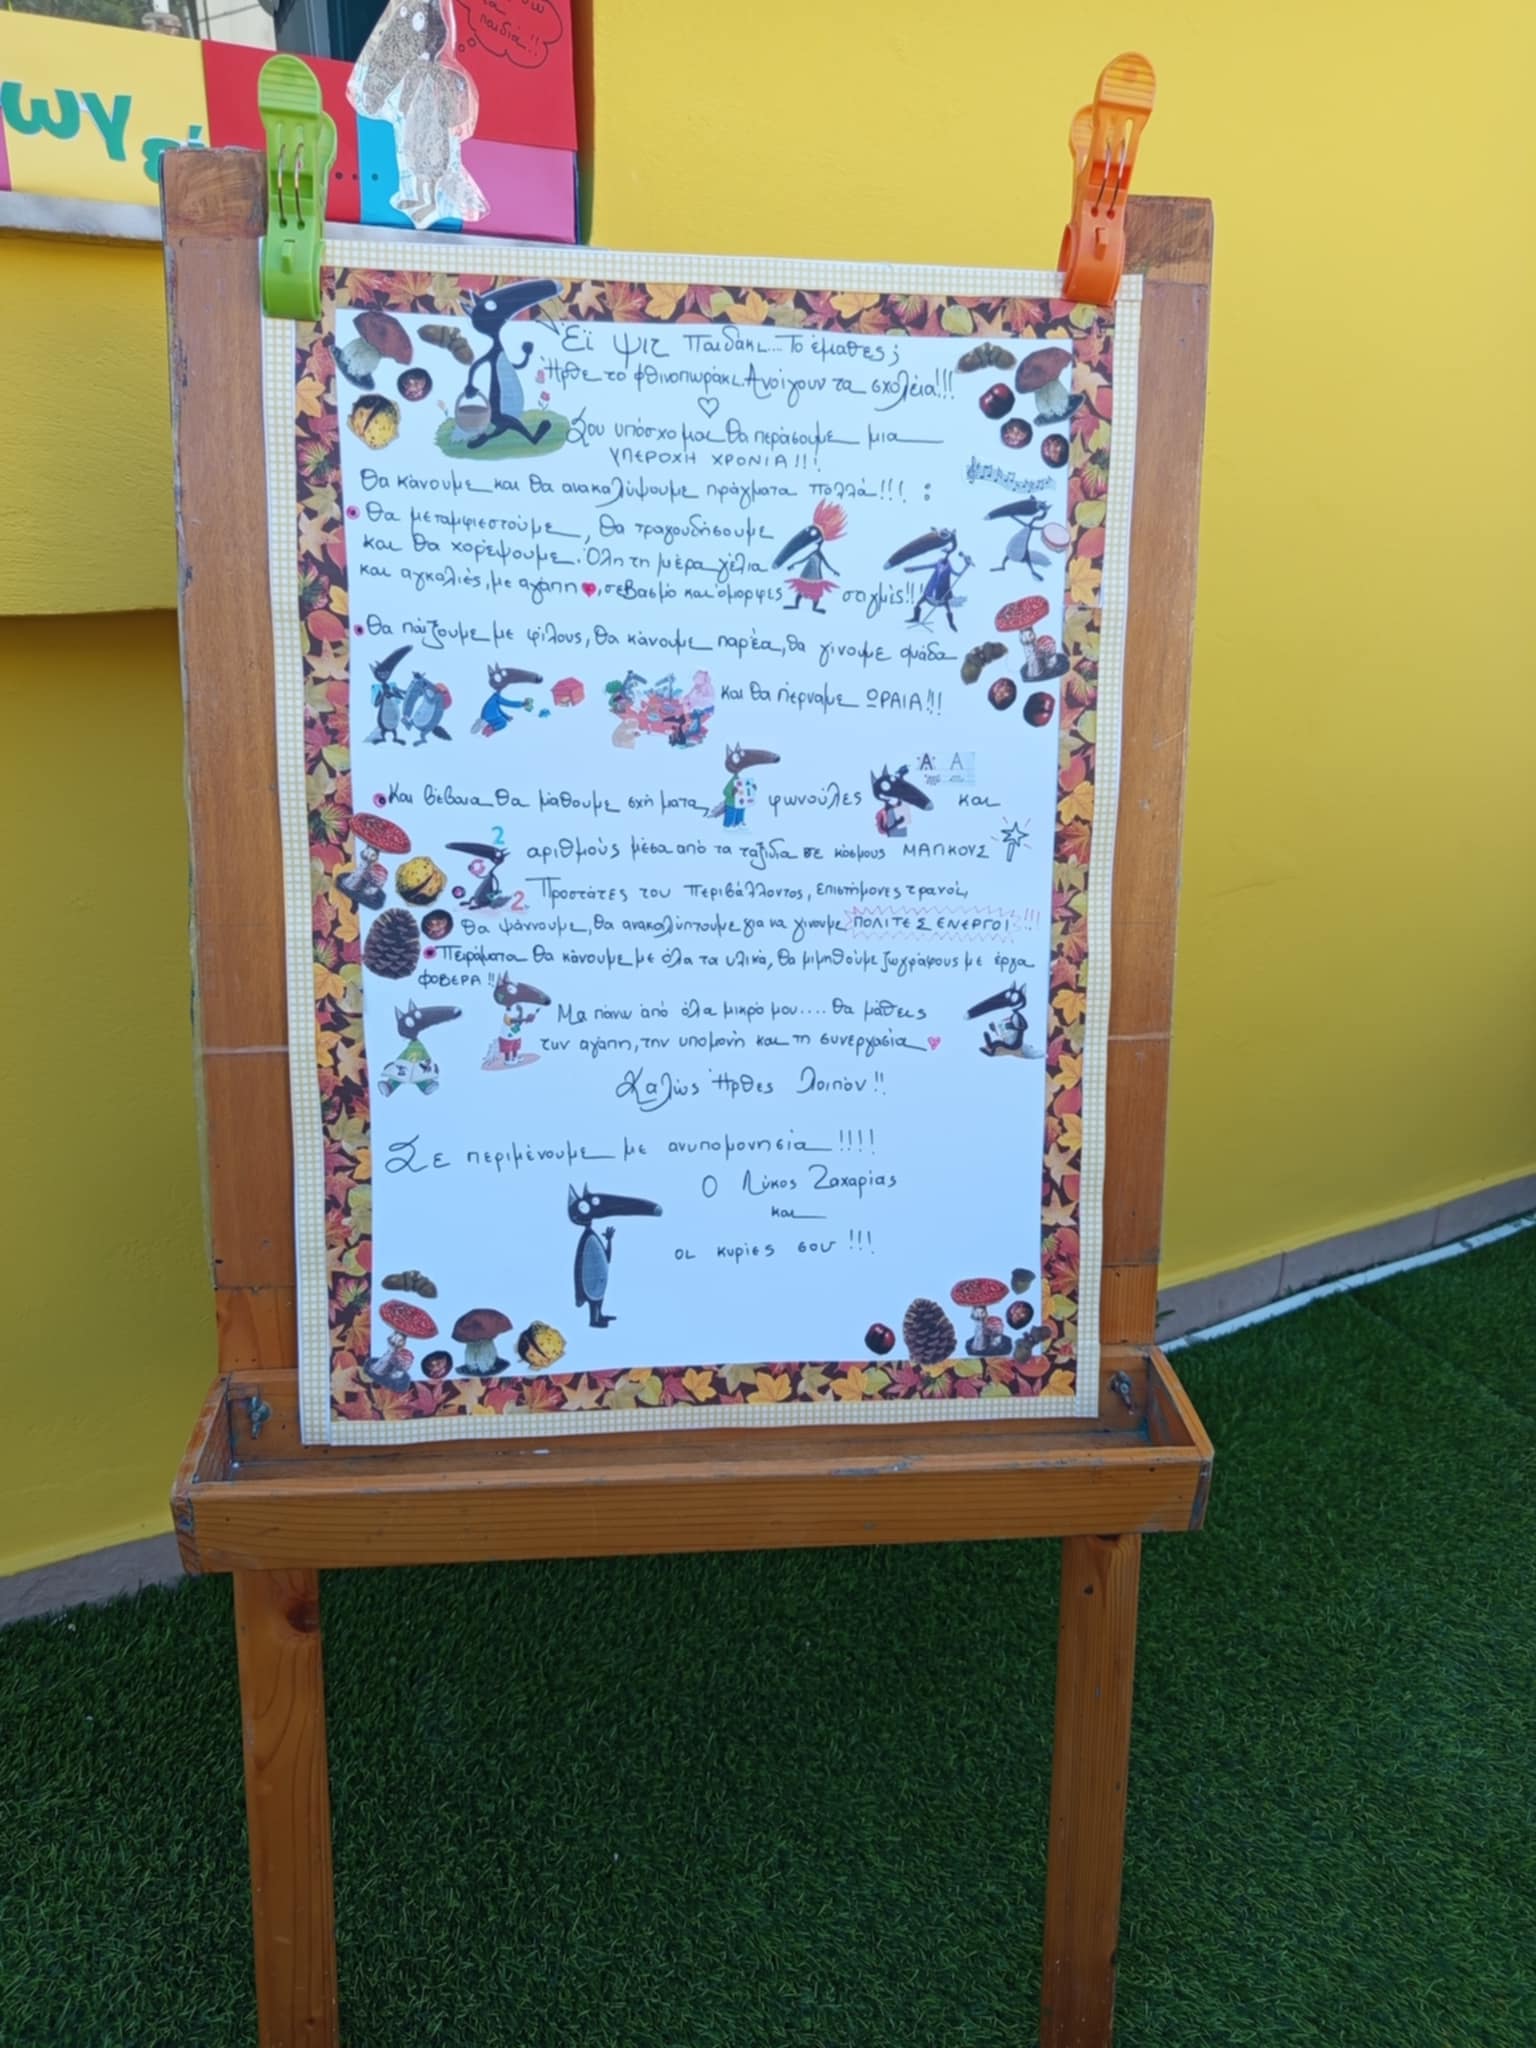 παιδιά!!
Εϊ ψιτ παιδάκι... Το έμαθες;
Ήρθε το φθινοπωράκι. Ανοίγουν τα σχολεία!!!
Σου υπόσχομαι θα περάσουμε μια
ΥΠΕΡΟΧΗ ΧΡΟΝΙΑ!!!
Θα κάνουμε και θα ανακαλύψουμε πράγματα πολλά!!! :
Θα μεταμφιεστούμε, θα τραγουδήσουμε
και θα χορέψουμε. Όλη τη μέρα γέλια
και αγκαλιές, με αγάπη, σεβασμό και όμορφες στιγμές!!!
Θα παίξουμε με φίλους, θα κάνουμε παρέα, θα γίνουμε ομάδα
και θα περναμε ΩΡΑΙΑ!!!
Α Α
Και βέβαια θα μάθουμε σχήματα, φωνούλες και
2
αριθμούς μέσα από τα ταξίδια σε κόσμους ΜΑΓΙΚΟΥΣ
2
Προστάτες του περιβάλλοντος, επιστήμονες τρανοί,
θα ψάχνουμε, θα ανακαλύπτουμε για να γίνουμε ΠΟΛΙΤΕΣ ΕΝΕΡΓΟΙ!!!
Πειράματα θα κάνουμε με όλα τα υλικά, θα μιμηθούμε ζωγράφους με έργα
ΦΟΒΕΡΑ!!
Μα πάνω από όλα μικρό μου.... θα μάθεις
την αγάπη, την υπομονή και τη συνεργασία
Καλώς Ήρθες λοιπόν!!
Σε περιμένουμε με ανυπομονησία!!!!
Ο Λύκος Ζαχαρίας
και
οι κυρίες σου!!!